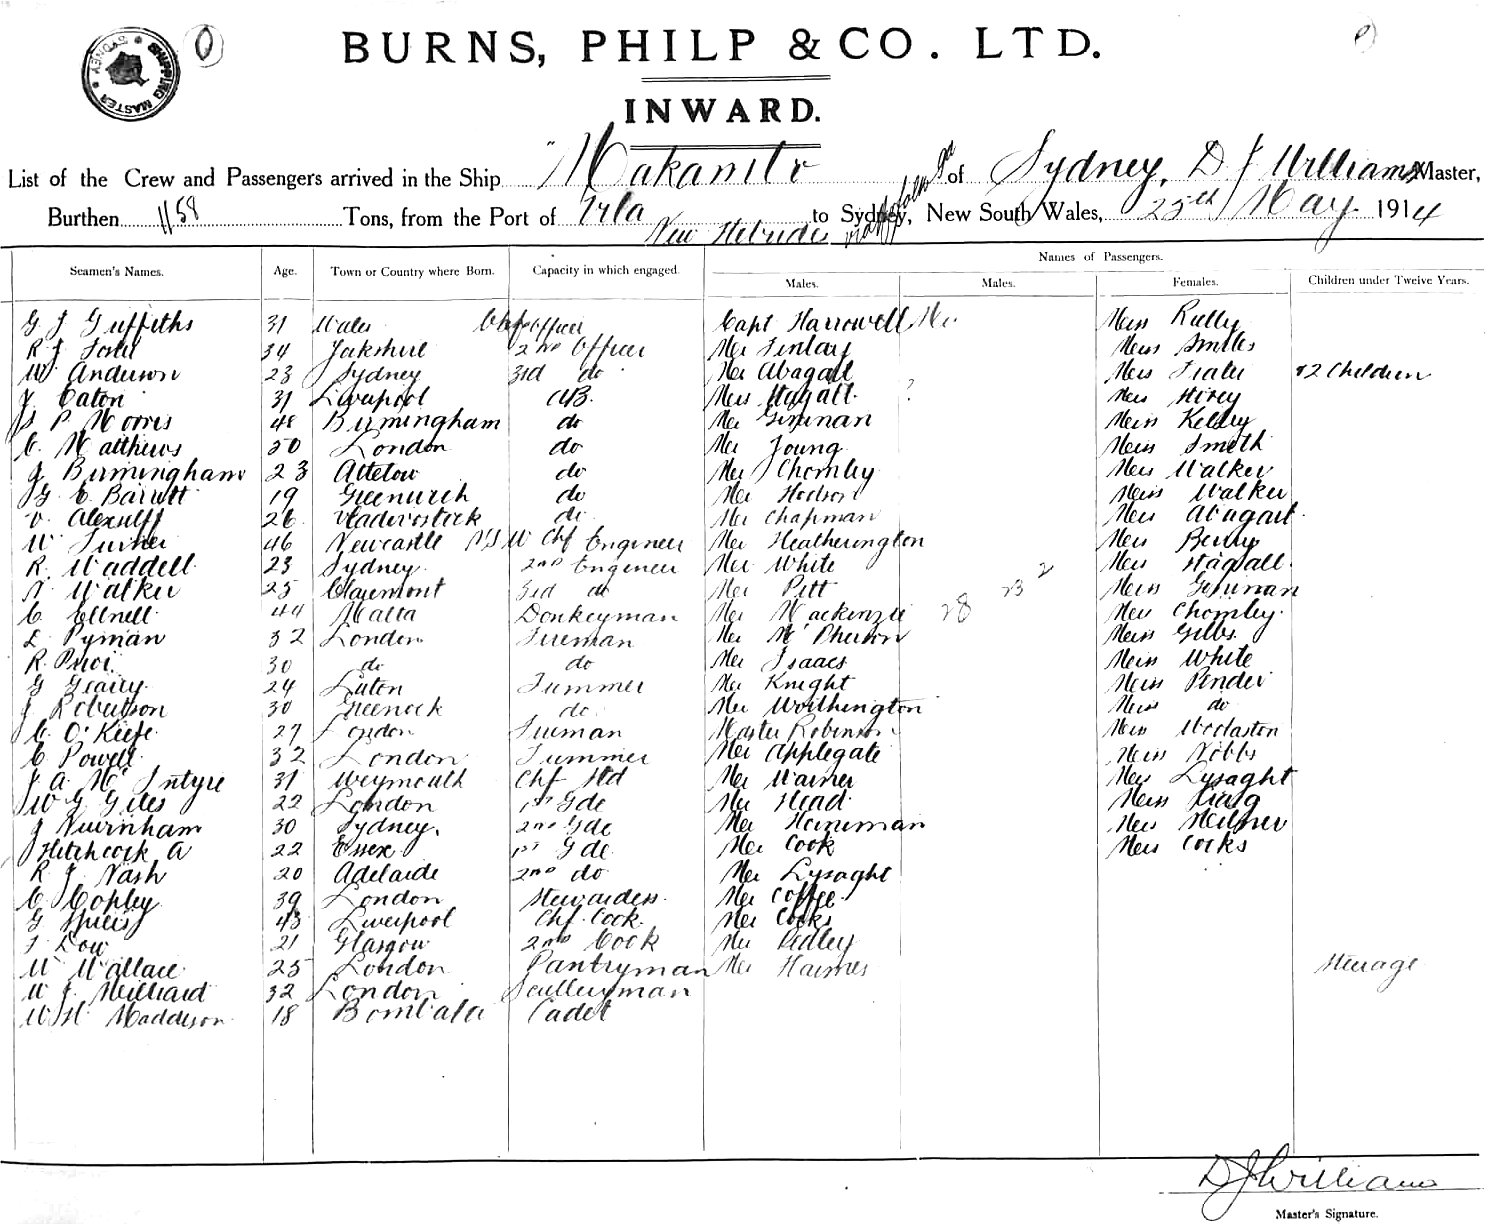 BURNS, PHILP & CO. LTD.
INWARD.
SYDNEY SHIPPING MASTER
List of the Crew and Passengers arrived in the Ship "Makambo of Sydney, D J Williams Master,
Burthen 1158 Tons, from the Port of Vila New Hebrides to Sydney, New South Wales, 25th May 1914
Seamen's Names. Age. Town or Country where Born. Capacity in which engaged. Names of Passengers.
Males. Males. Females. Children under Twelve Years.
G J Griffiths 31 Wales Chf Officer Capt Harrowell Miss Reilly
R J 34 Yorkshire 2nd Officer Mr Finlay Miss Smiles
W Anderson 23 Sydney 3rd do Mr Abagail Mrs 2 Children
J Eaton 31 Liverpool AB. ?
P Morris 48 Birmingham do Mr Miss Kelsey
C. Matthews 50 London do Mr Young Miss Smith
J Birmingham 23 do Mr Chomley Mrs Walker
G C Barrett 19 Greenwich do Mr Hodson Miss Walker
26 Vladivostock do Mr Chapman Mrs Abagail
W Turner 46 Newcastle NSW Chf Engineer Mr Heatherington
R. Waddell 23 Sydney 2nd Engineer Mr White Mrs
Walker 25 Claremont 3rd do Mr Pitt Miss
C 44 Malta Donkeyman Mr Mackenzie 28 23 2 Mrs Chomley
L Pyman 32 London Fireman Mr McPherson Miss Gibbs
R. Prior 30 do do Mr Isaacs Miss White
G Geairy 24 Luton Trimmer Mr Knight Miss Pender
J Robertson 30 Greenock do Mr Worthington Miss do
C. O'Keefe 27 London Fireman Master Robinson Miss Woolaston
C Powell 32 London Trimmer Mr Applegate Miss Nobbs
J A McIntyre 31 Weymouth Chf Std Mr Warner Mrs Lysaght
W G Giles 22 London 1st Gde Mr Head Miss Craig
J Newnham 30 Sydney 2nd Gde Mr
Hitchcock A 22 Essex 1st Gde Mr Cook Mrs Cooks
R J Nash 20 Adelaide 2nd do Mr Lysaght
C Copley 39 London Stewardess Mr Coffee
G 43 Liverpool Chf. Cook Mr Cooks
J Low 21 Glasgow 2nd Cook Mr Pedley
W Wallace 25 London Pantryman Mr Steerage
W J 32 London Sculleryman
W H Maddison 18 Bombala Cadet
D J Williams
Master's Signature.